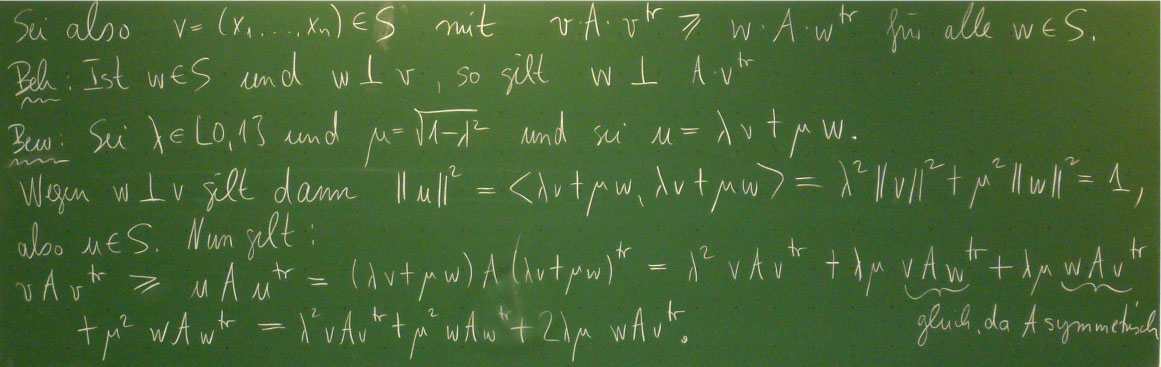 Sei also v = (x₁, ..., xₙ) ∈ S mit v A · vᵗʳ ⩾ w · A · wᵗʳ für alle w ∈ S.
Beh.: Ist w ∈ S und w ⊥ v, so gilt w ⊥ A · vᵗʳ
Bew: Sei λ ∈ [0,1] und μ = √(1-λ²) und sei u = λv + μw.
Wegen w ⊥ v gilt dann ‖u‖² = <λv + μw, λv + μw> = λ²‖v‖² + μ²‖w‖² = 1,
also u ∈ S. Nun gilt:
vAvᵗʳ ⩾ uAuᵗʳ = (λv + μw) A (λv + μw)ᵗʳ = λ² vAvᵗʳ + λμ vAwᵗʳ + λμ wAvᵗʳ
gleich, da A symmetrisch
+ μ² wAwᵗʳ = λ² vAvᵗʳ + μ² wAwᵗʳ + 2λμ wAvᵗʳ.